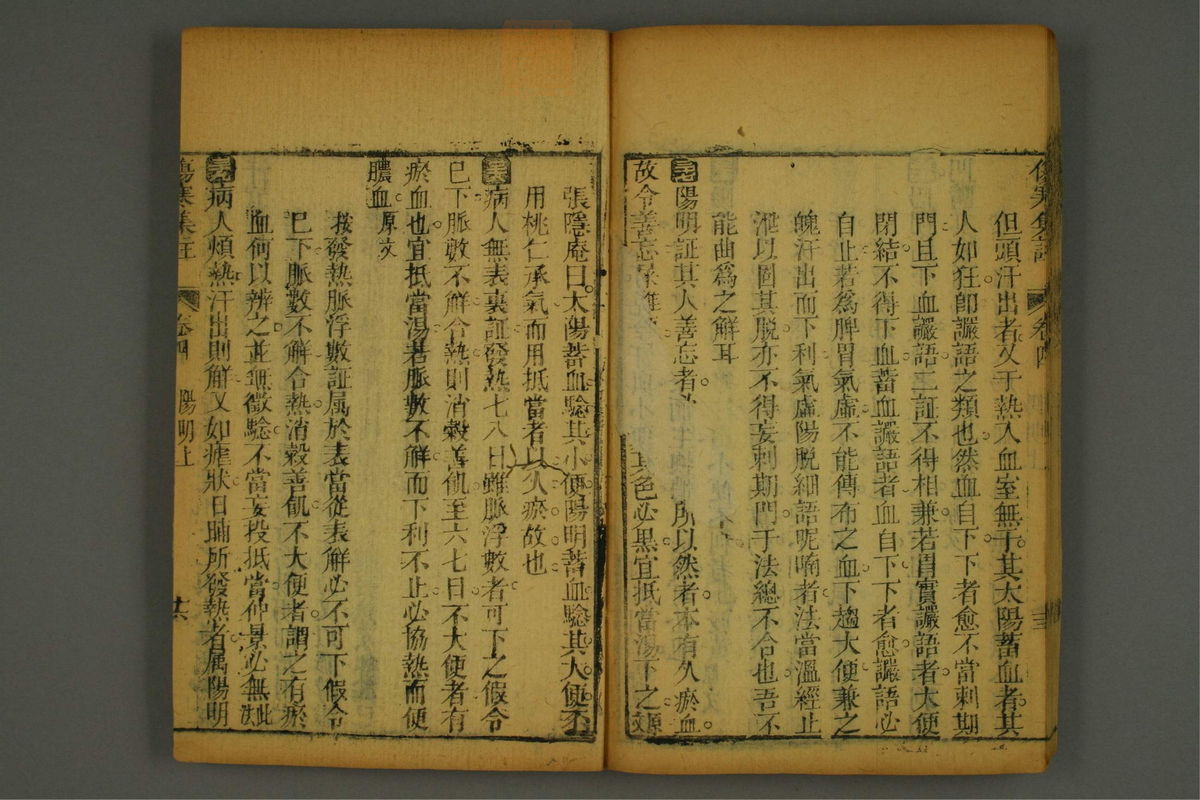 傷寒集註 卷四
但頭汗出者又于熱入血室無干其太陽蓄血者其
人如狂卽讝語之類也然血自下下者愈不當刺期
門且下血讝語二証不得相兼若自實讝語者大便
閉結不得下血蓄血讝語者血自下下者愈讝語必
自止若為脾胃氣虛不能傳布之血下趨大便兼之
魄汗出而下利氣虛陽脱細語呢喃者法當溫經止
泄以固其脱亦不得妄刺期門于法總不合也吾不
能曲為之解耳
陽明証其人善忘者 所以然者本有久瘀血
故令善忘屎雖 其色必黑宜抵當湯下之原文
張隱庵曰太陽蓄血驗其小便陽明蓄血驗其大便不
用桃仁承氣而用抵當者以久瘀故也
病人無表裏証發熱七八日雖脈浮數者可下之假令
已下脈數不解合熱則消穀善飢至六七日不大便者有
瘀血也宜抵當湯若脈數不解而下利不止必協熱而便
膿血原文
按發熱脈浮數証属於表當從表解必不可下假令
已下脈數不解合熱消穀善飢不大便者謂之有瘀
血何以辨之並無徵驗不當妄投抵當仲景必無此法
病人煩熱汗出則解又如瘧狀日晡所發熱者属陽明
傷寒集註 卷四 陽明上